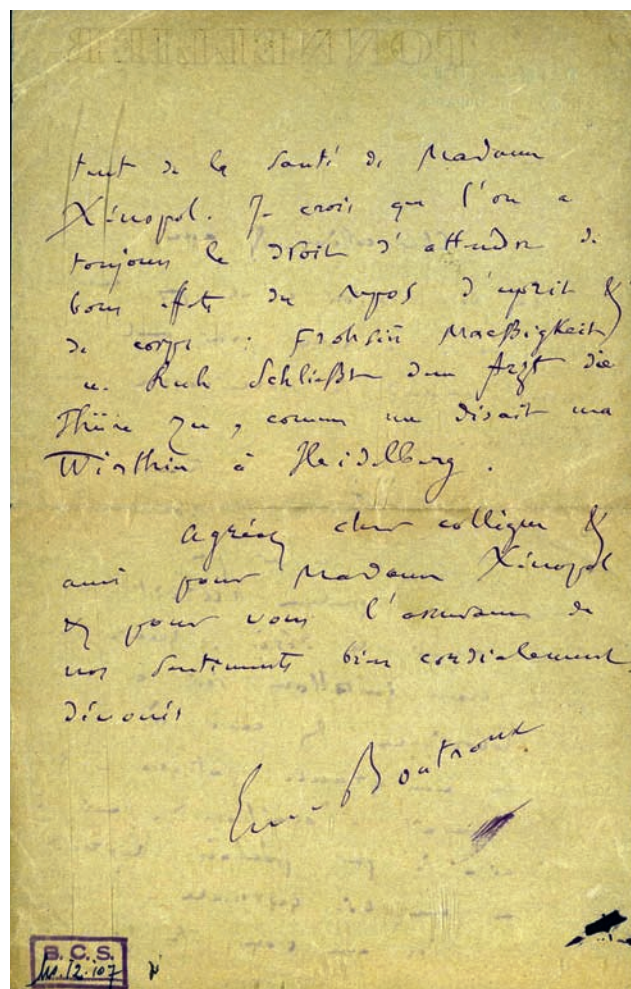 tant de la santé de Madame
Xénopol. Je crois que l'on a
toujours le droit d'attendre de
bons effets du repos d'esprit &
de corps : Frohsinn Maeßigkeit
u. Ruh schließt dem Arzt die
Thüre zu, comme me disait ma
Wirthin à Heidelberg.
Agréez cher collègue &
ami pour Madame Xénopol
& pour vous l'assurance de
nos sentiments bien cordialement
dévoués
Em. Boutroux
B. C. S.